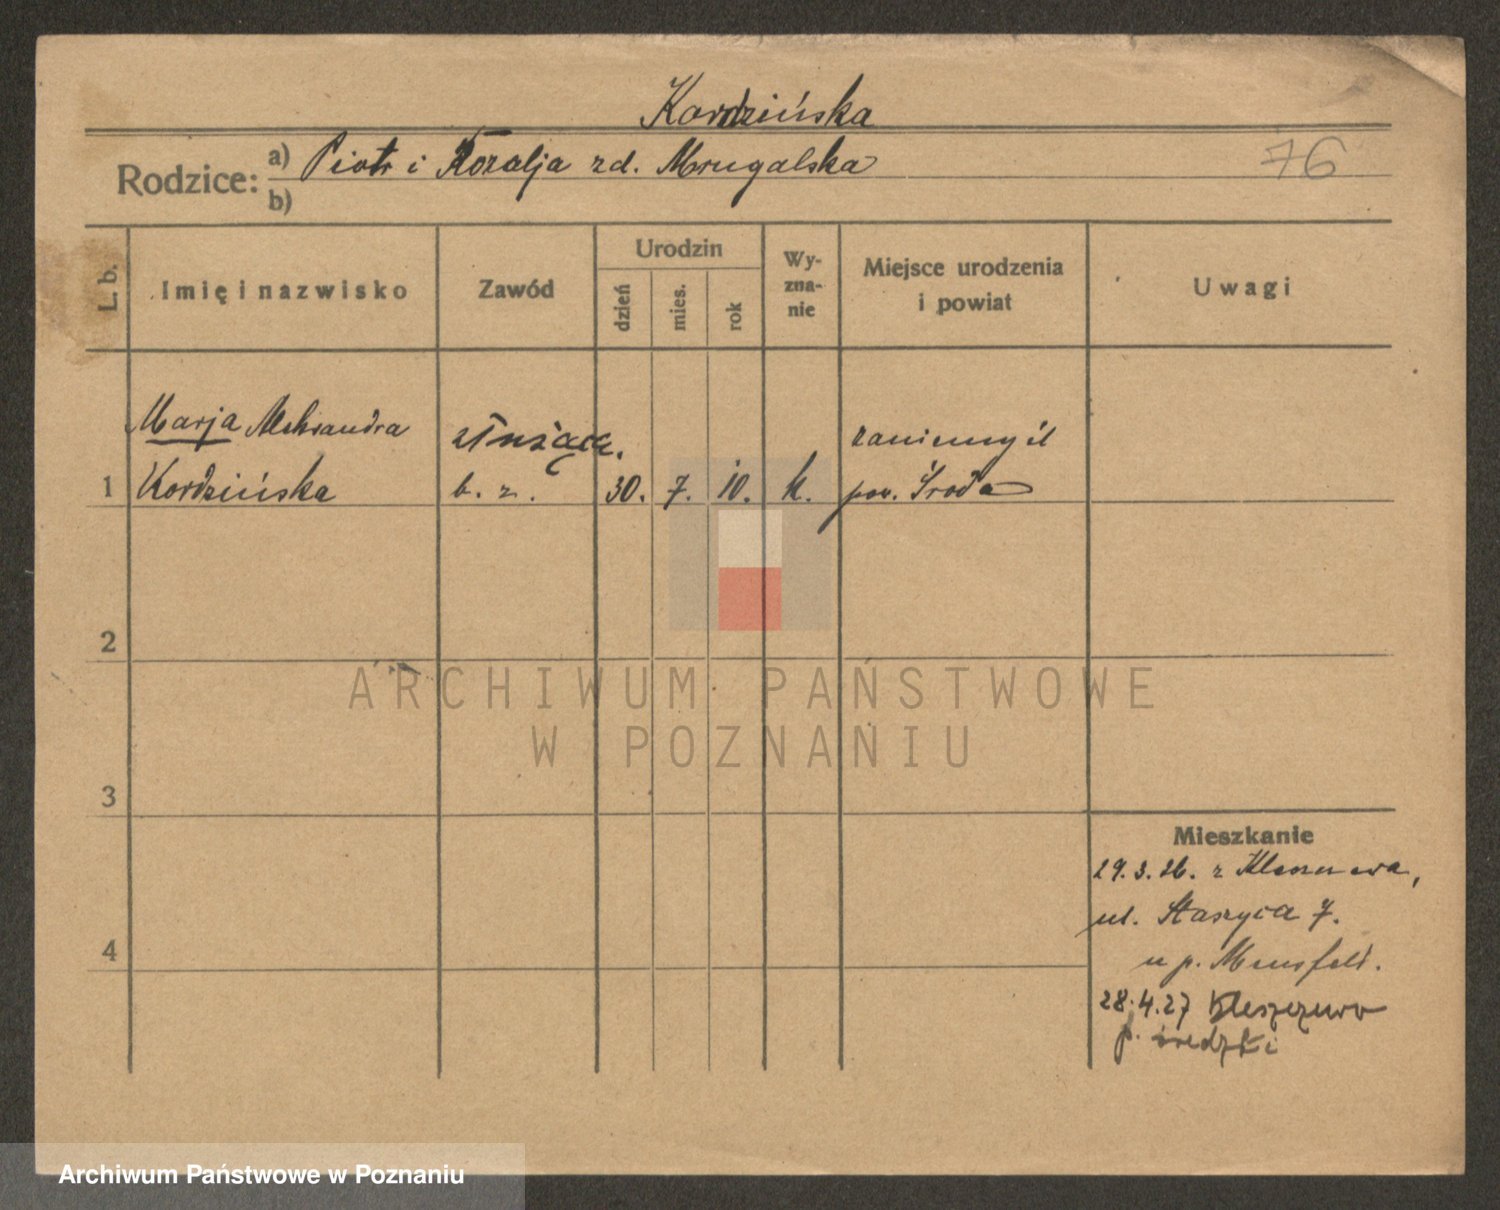 Kordzińska
Rodzice: a) Piotr i Rozalja zd. Mrugalska
b)
76
L. b.
Imię i nazwisko
Zawód
Urodzin
dzień
mies.
rok
Wy-
zna-
nie
Miejsce urodzenia
i powiat
Uwagi
Marja Aleksandra
Kordzińska
służąca.
b. z.
1
30. 7. 10. k.
Zaniemyśl
pow. Środa
2
3
4
ARCHIWUM PAŃSTWOWE
W POZNANIU
Mieszkanie
29.3.26. z
ul. Staszyca 7.
u p. Mensfeld.
28.4.27 Kleszczewo
p. średzki
Archiwum Państwowe w Poznaniu